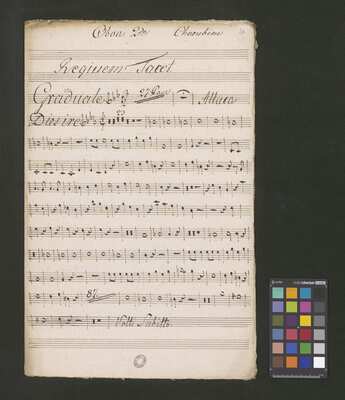 Oboa 2do Cherubini
Requiem Tacet
Graduale Attaca
Dies ire
Volti Subitto